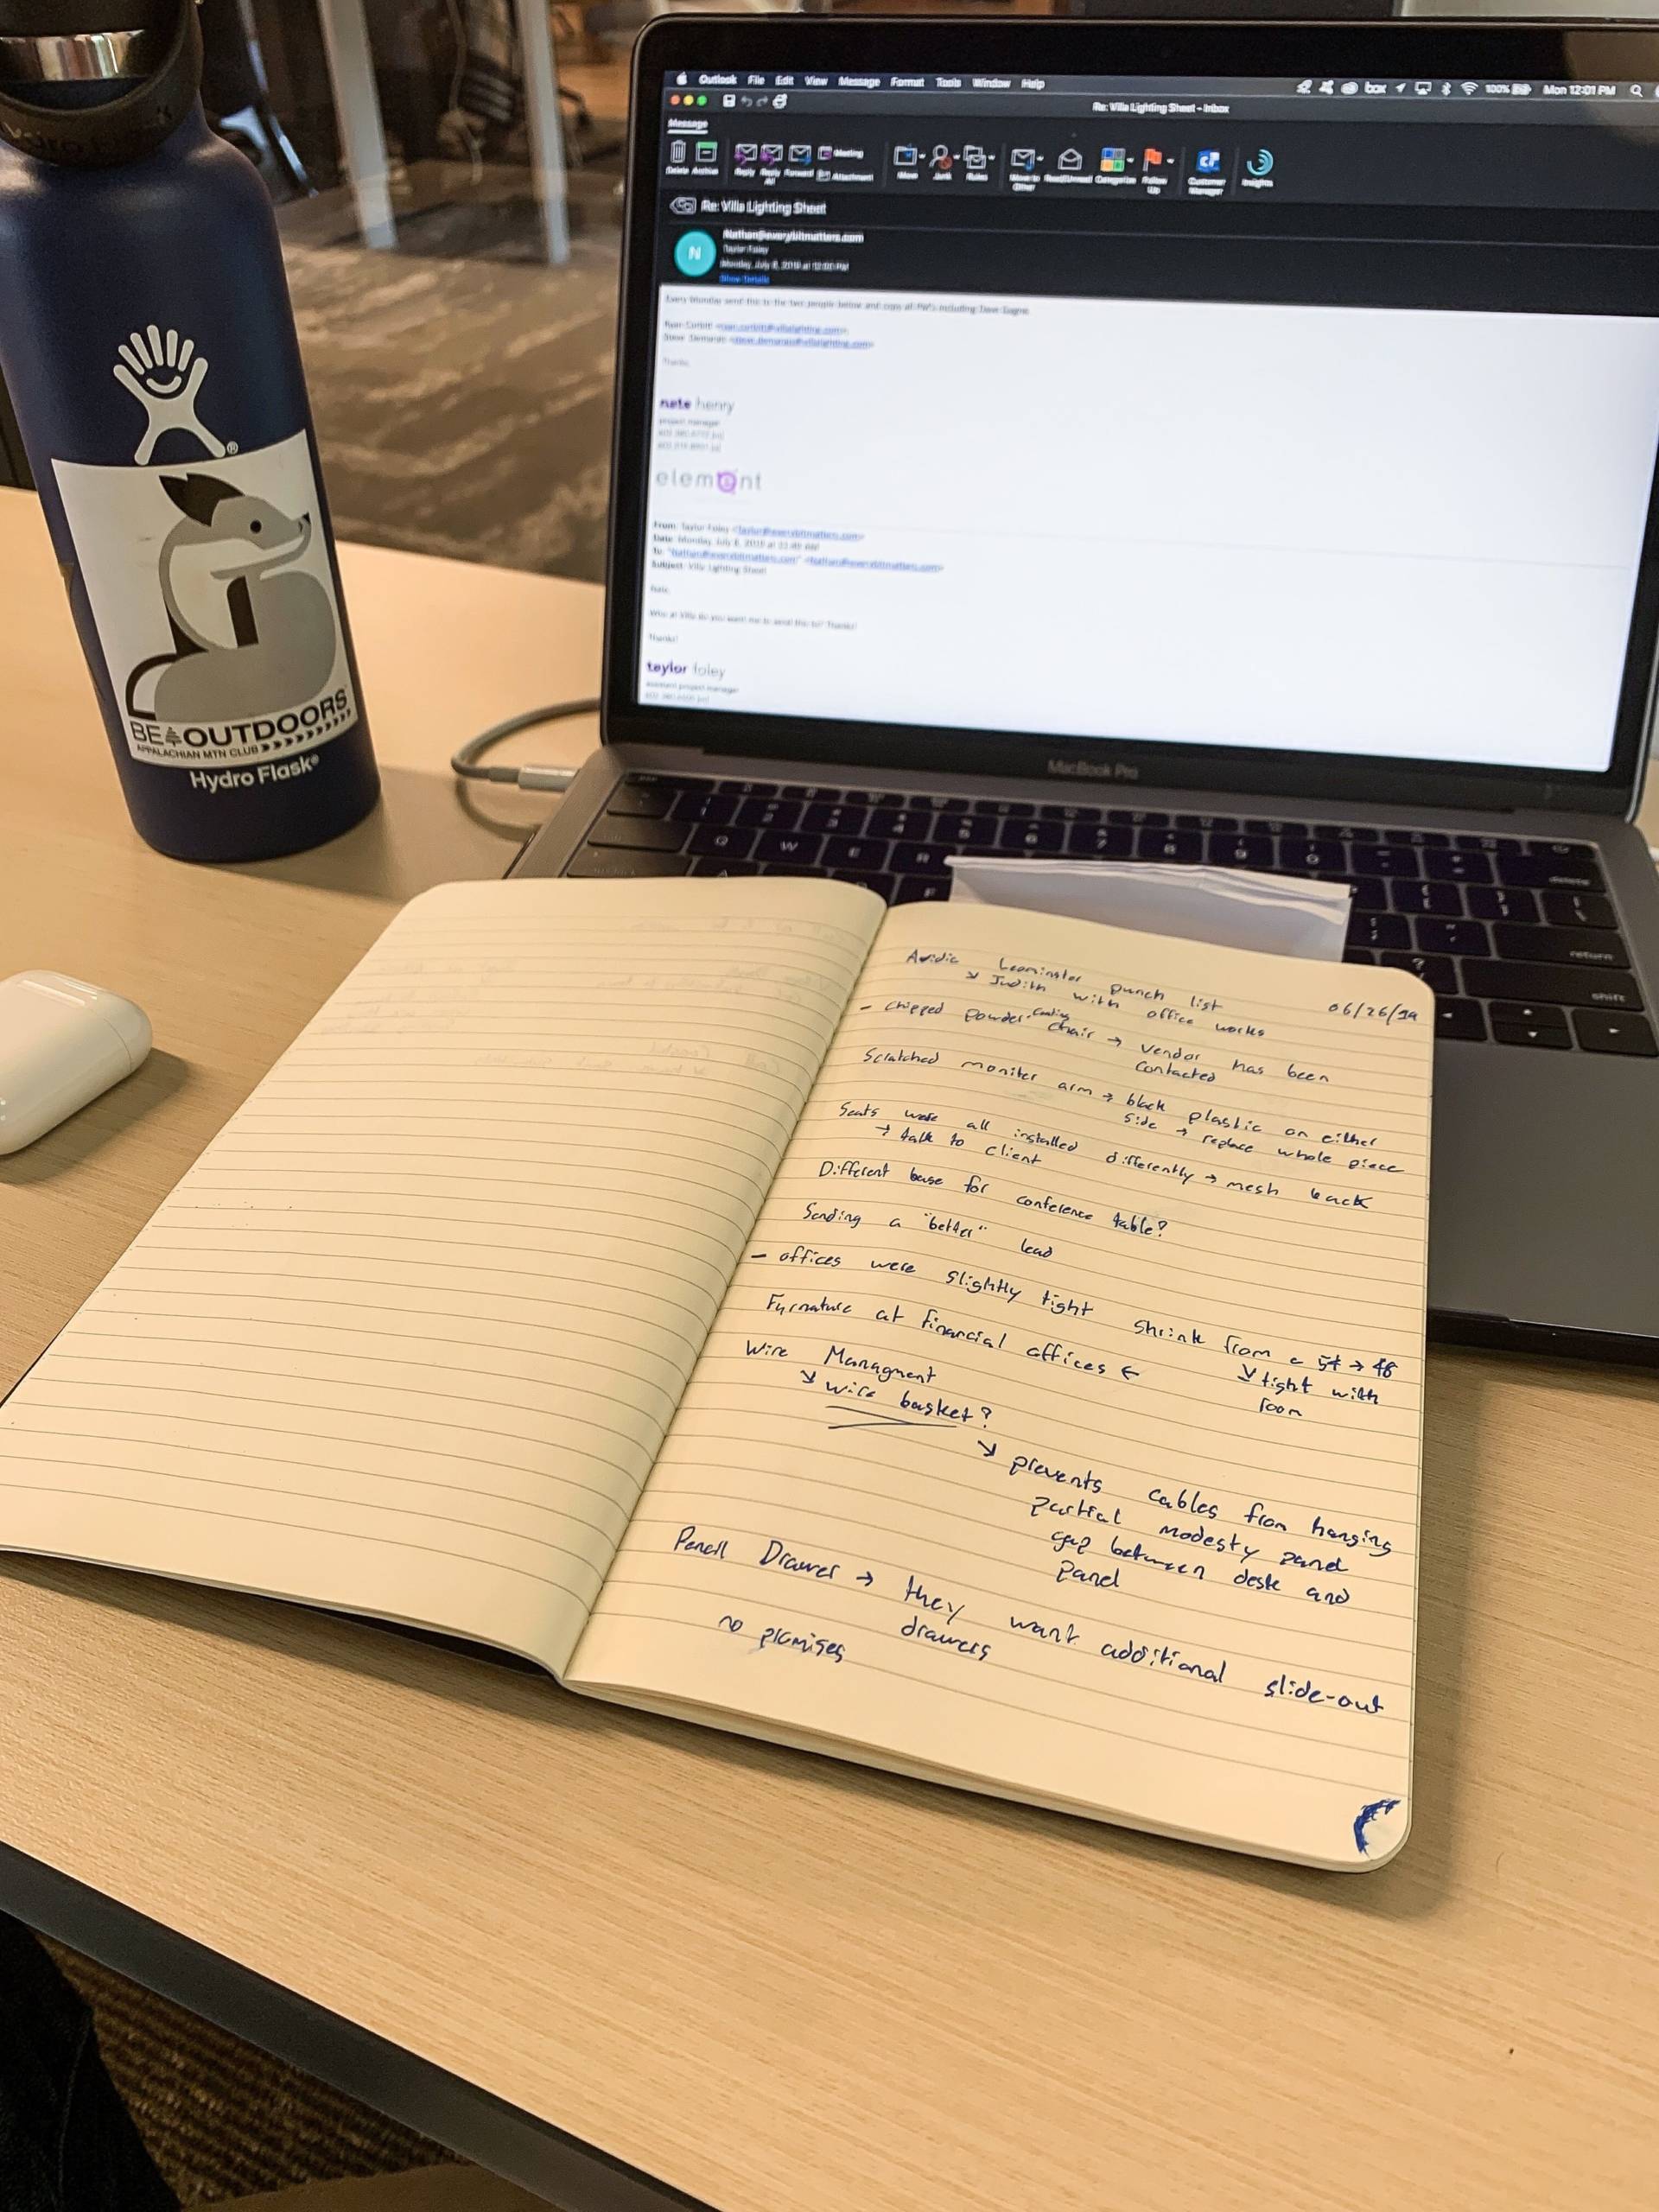 Outlook File Edit View Message Format Tools Window Help
box 100% Mon 12:01 PM
Re: Villa Lighting Sheet - Inbox
Message
Delete Archive Reply Reply All Forward Meeting Attachment Move Junk Rules Move to Other Read/Unread Categorize Follow Up Customer Manager Insights
Re: Villa Lighting Sheet
N
Nathan@everybitmatters.com
Taylor Foley
Show Details
Every Monday send this to the two people below and copy all PM's including Dave Gagne
Thanks,
nate henry
project manager
element
From: Taylor Foley <Taylor@everybitmatters.com>
To: "Nathan@everybitmatters.com" <Nathan@everybitmatters.com>
Subject: Villa Lighting Sheet
Nate,
Who at Villa do you want me to send this to? Thanks!
Thanks!
taylor foley
assistant project manager
MacBook Pro
BE OUTDOORS
APPALACHIAN MTN CLUB
Hydro Flask®
Leominster punch list
06/26/19
↘ Judith with office works
- Chipped powder coating chair → vendor has been
contacted
Scratched moniter arm → black plastic on either
side → replace whole piece
Seats were all installed differently → mesh back
→ talk to client
Different base for conference table?
Sending a "better" lead
- offices were slightly tight shrink from 54 → 48
↘ tight with
room
Furnature at financial offices ←
Wire Managment
↘ wire basket?
↘ prevents cables from hanging
partial modesty panel
gap between desk and
panel
Pencil Drawer → they want additional slide-out
drawers
no promises